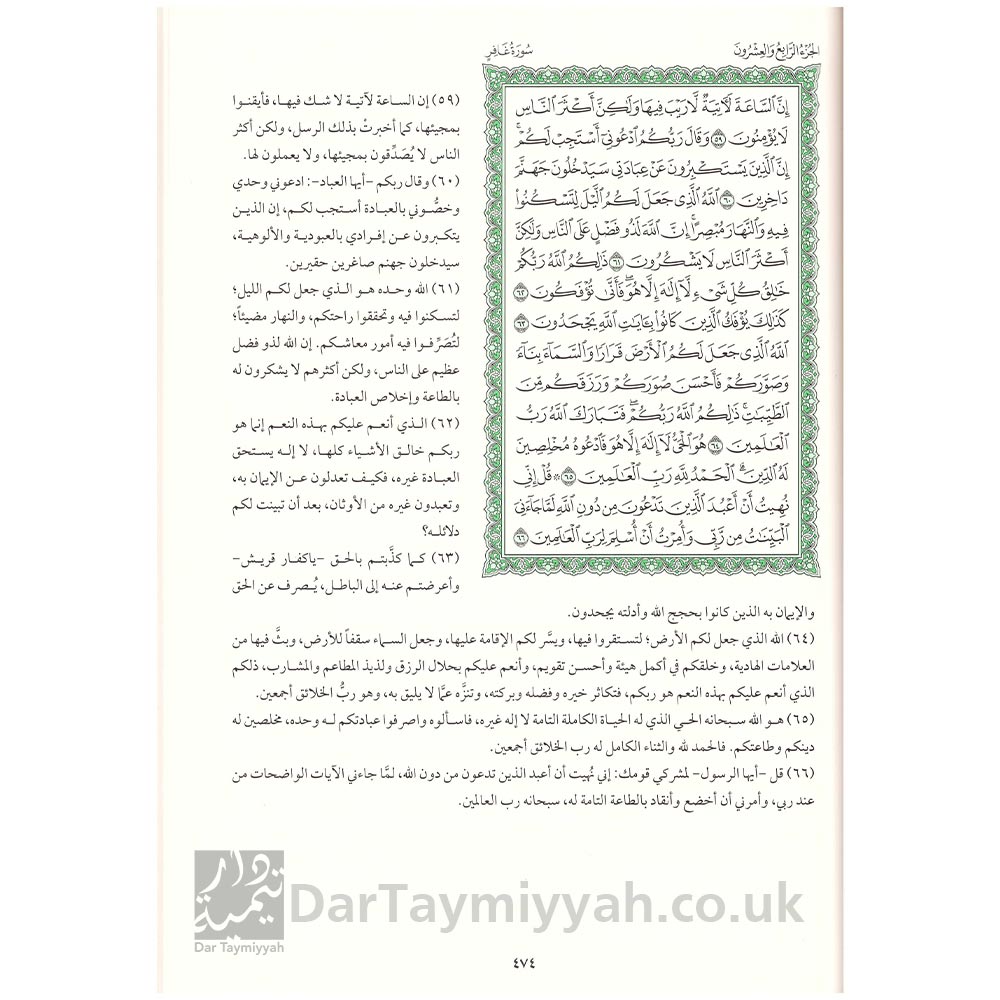 الجزء الرابع والعشرون
سورة غافر
إِنَّ ٱلسَّاعَةَ لَأٓتِيَةٌ لَّا رَيْبَ فِيهَا وَلَٰكِنَّ أَكْثَرَ ٱلنَّاسِ
لَا يُؤْمِنُونَ ٥٩ وَقَالَ رَبُّكُمُ ٱدْعُونِىٓ أَسْتَجِبْ لَكُمْ ۚ
إِنَّ ٱلَّذِينَ يَسْتَكْبِرُونَ عَنْ عِبَادَتِى سَيَدْخُلُونَ جَهَنَّمَ
دَاخِرِينَ ٦٠ ٱللَّهُ ٱلَّذِى جَعَلَ لَكُمُ ٱلَّيْلَ لِتَسْكُنُوا۟
فِيهِ وَٱلنَّهَارَ مُبْصِرًا ۚ إِنَّ ٱللَّهَ لَذُو فَضْلٍ عَلَى ٱلنَّاسِ وَلَٰكِنَّ
أَكْثَرَ ٱلنَّاسِ لَا يَشْكُرُونَ ٦١ ذَٰلِكُمُ ٱللَّهُ رَبُّكُمْ
خَٰلِقُ كُلِّ شَىْءٍ لَّآ إِلَٰهَ إِلَّا هُوَ ۖ فَأَنَّىٰ تُؤْفَكُونَ ٦٢
كَذَٰلِكَ يُؤْفَكُ ٱلَّذِينَ كَانُوا۟ بِـَٔايَٰتِ ٱللَّهِ يَجْحَدُونَ ٦٣
ٱللَّهُ ٱلَّذِى جَعَلَ لَكُمُ ٱلْأَرْضَ قَرَارًا وَٱلسَّمَآءَ بِنَآءً
وَصَوَّرَكُمْ فَأَحْسَنَ صُوَرَكُمْ وَرَزَقَكُم مِّنَ
ٱلطَّيِّبَٰتِ ۚ ذَٰلِكُمُ ٱللَّهُ رَبُّكُمْ ۖ فَتَبَارَكَ ٱللَّهُ رَبُّ
ٱلْعَٰلَمِينَ ٦٤ هُوَ ٱلْحَىُّ لَآ إِلَٰهَ إِلَّا هُوَ فَٱدْعُوهُ مُخْلِصِينَ
لَهُ ٱلدِّينَ ۗ ٱلْحَمْدُ لِلَّهِ رَبِّ ٱلْعَٰلَمِينَ ٦٥ ۞ قُلْ إِنِّى
نُهِيتُ أَنْ أَعْبُدَ ٱلَّذِينَ تَدْعُونَ مِن دُونِ ٱللَّهِ لَمَّا جَآءَنِىَ
ٱلْبَيِّنَٰتُ مِن رَّبِّى وَأُمِرْتُ أَنْ أُسْلِمَ لِرَبِّ ٱلْعَٰلَمِينَ ٦٦
(٥٩) إن الساعة لآتية لا شك فيها، فأيقنوا
بمجيئها، كما أخبرتْ بذلك الرسل، ولكن أكثر
الناس لا يُصَدِّقون بمجيئها، ولا يعملون لها.
(٦٠) وقال ربكم –أيها العباد–: ادعوني وحدي
وخصُّوني بالعبادة أستجب لكم، إن الذين
يتكبرون عن إفرادي بالعبودية والألوهية،
سيدخلون جهنم صاغرين حقيرين.
(٦١) الله وحده هو الذي جعل لكم الليل؛
لتسكنوا فيه وتحققوا راحتكم، والنهار مضيئاً؛
لتُصَرِّفوا فيه أمور معاشكم. إن الله لذو فضل
عظيم على الناس، ولكن أكثرهم لا يشكرون له
بالطاعة وإخلاص العبادة.
(٦٢) الذي أنعم عليكم بهذه النعم إنما هو
ربكم خالق الأشياء كلها، لا إله يستحق
العبادة غيره، فكيف تعدلون عن الإيمان به،
وتعبدون غيره من الأوثان، بعد أن تبينت لكم
دلائله؟
(٦٣) كما كذَّبتم بالحق –ياكفار قريش–
وأعرضتم عنه إلى الباطل، يُصرف عن الحق
والإيمان به الذين كانوا بحجج الله وأدلته يجحدون.
(٦٤) الله الذي جعل لكم الأرض؛ لتستقروا فيها، ويسَّر لكم الإقامة عليها، وجعل السماء سقفاً للأرض، وبثَّ فيها من
العلامات الهادية، وخلقكم في أكمل هيئة وأحسن تقويم، وأنعم عليكم بحلال الرزق ولذيذ المطاعم والمشارب، ذلكم
الذي أنعم عليكم بهذه النعم هو ربكم، فتكاثر خيره وفضله وبركته، وتنزَّه عمَّا لا يليق به، وهو ربُّ الخلائق أجمعين.
(٦٥) هو الله سبحانه الحي الذي له الحياة الكاملة التامة لا إله غيره، فاسألوه واصرفوا عبادتكم له وحده، مخلصين له
دينكم وطاعتكم. فالحمد لله والثناء الكامل له رب الخلائق أجمعين.
(٦٦) قل –أيها الرسول– لمشركي قومك: إني نُهيت أن أعبد الذين تدعون من دون الله، لمَّا جاءني الآيات الواضحات من
عند ربي، وأمرني أن أخضع وأنقاد بالطاعة التامة له، سبحانه رب العالمين.
دار تيمية
Dar Taymiyyah
DarTaymiyyah.co.uk
٤٧٤